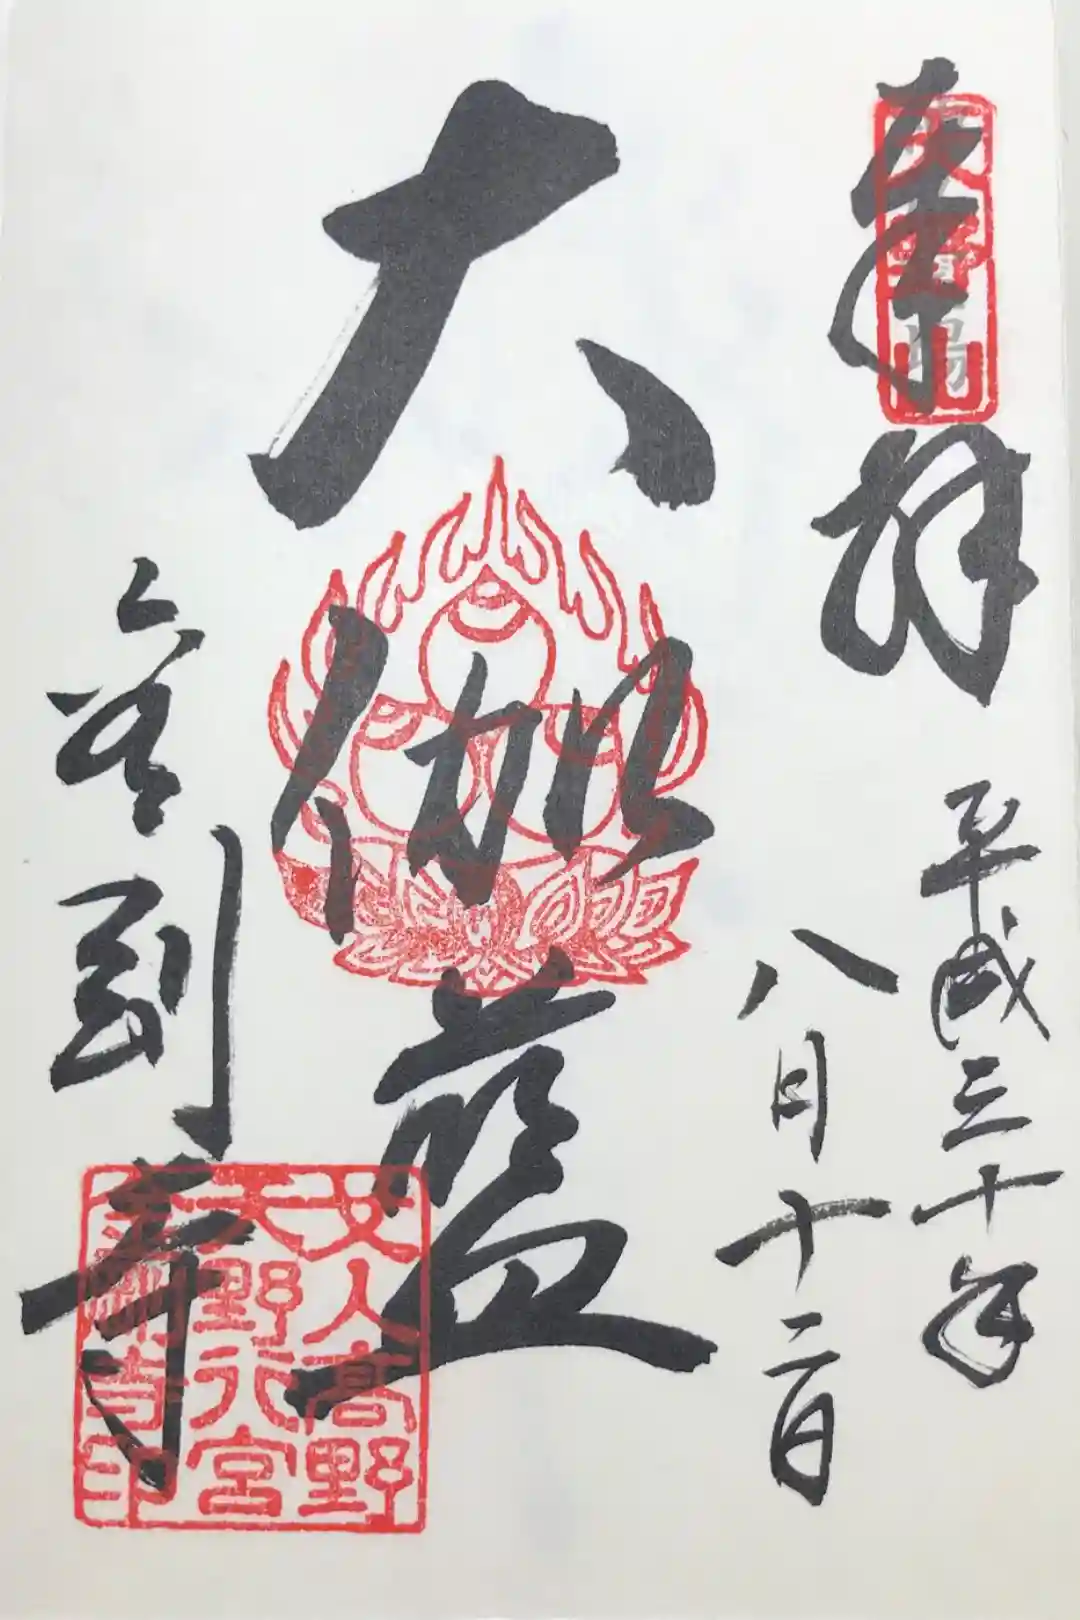 奉拝
天野山
平成三十年
八月十二日
大伽藍
金剛寺
女人高野
天野行宮
金剛寺印